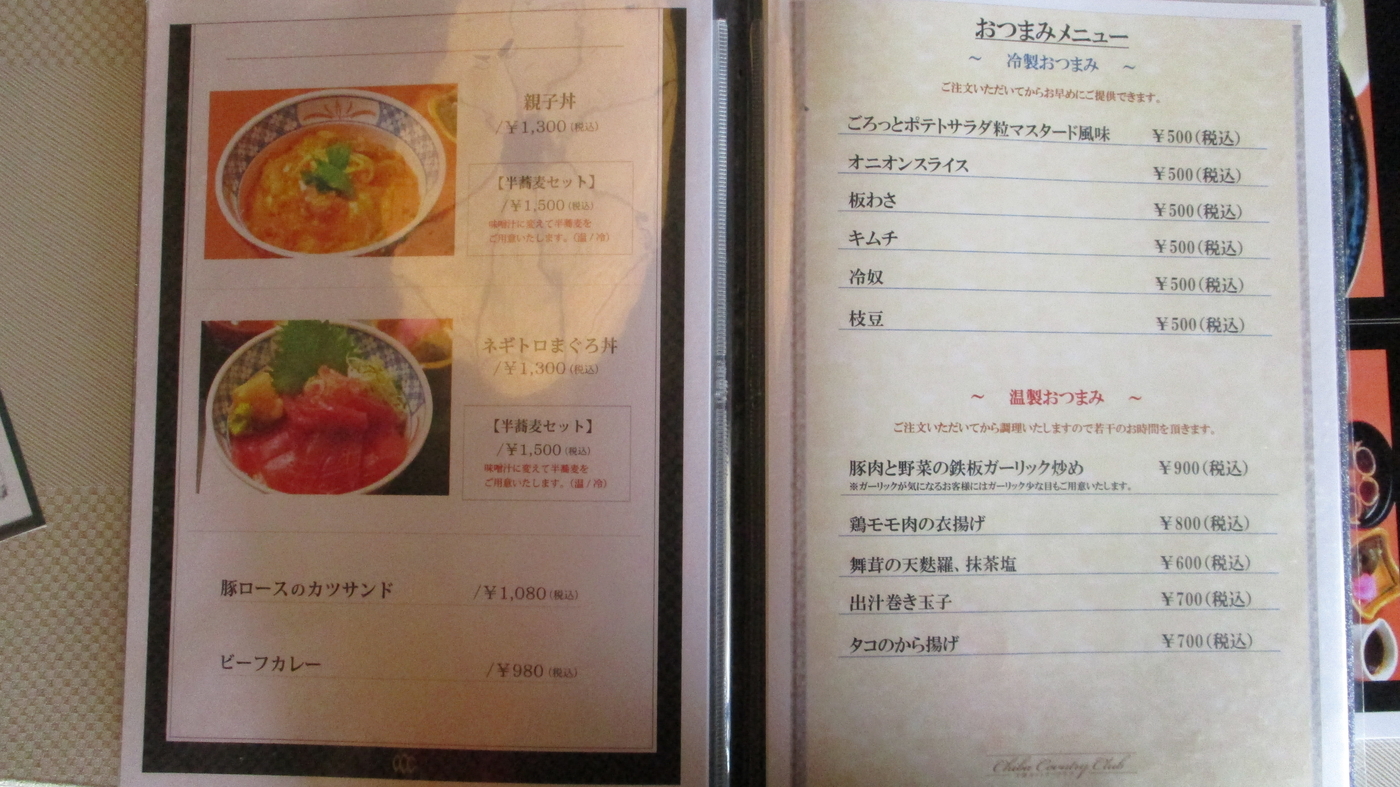 親子丼
/￥1,300(税込)
【半蕎麦セット】
/￥1,500(税込)
味噌汁に変えて半蕎麦を
ご用意いたします。(温/冷)
ネギトロまぐろ丼
/￥1,300(税込)
【半蕎麦セット】
/￥1,500(税込)
味噌汁に変えて半蕎麦を
ご用意いたします。(温/冷)
豚ロースのカツサンド /￥1,080(税込)
ビーフカレー /￥980(税込)
おつまみメニュー
～ 冷製おつまみ ～
ご注文いただいてからお早めにご提供できます。
ごろっとポテトサラダ粒マスタード風味 ￥500(税込)
オニオンスライス ￥500(税込)
板わさ ￥500(税込)
キムチ ￥500(税込)
冷奴 ￥500(税込)
枝豆 ￥500(税込)
～ 温製おつまみ ～
ご注文いただいてから調理いたしますので若干のお時間を頂きます。
豚肉と野菜の鉄板ガーリック炒め ￥900(税込)
※ガーリックが気になるお客様にはガーリック少な目もご用意いたします。
鶏モモ肉の衣揚げ ￥800(税込)
舞茸の天麩羅、抹茶塩 ￥600(税込)
出汁巻き玉子 ￥700(税込)
タコのから揚げ ￥700(税込)
Chiba Country Club